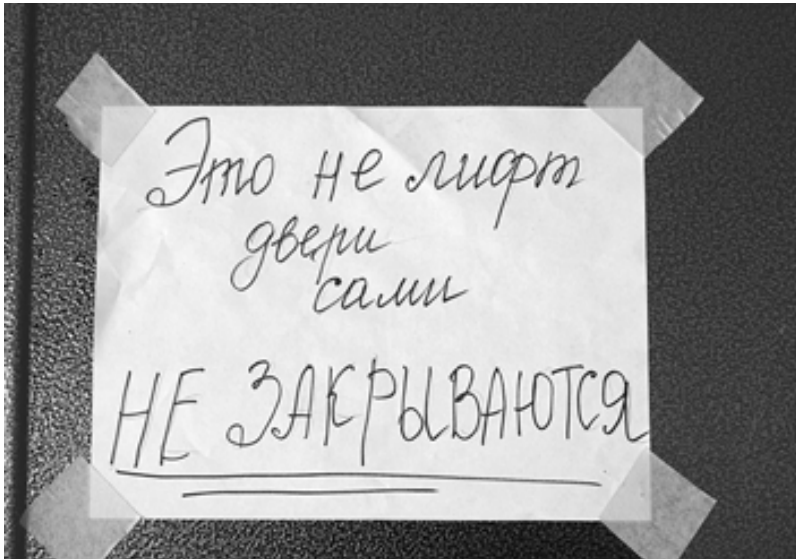 Это не лифт
двери
сами
НЕ ЗАКРЫВАЮТСЯ